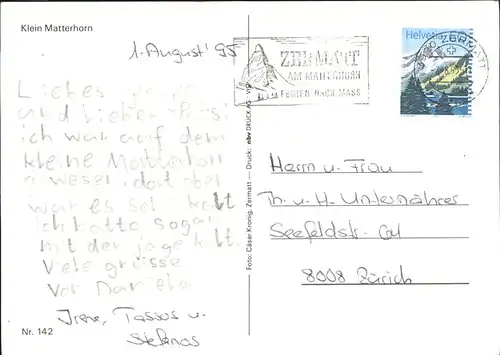 Klein Matterhorn
1. August '95
Liebes
und lieber
ich war auf dem
kleine Matterhorn
gwesen, dort oben
war es sehr kalt
ich hatte sogar
mit der jage kalt
Viele grüsse
Von Daniela
Irene, Tassos u.
Stefanos
Nr. 142
Foto: Cäsar Kronig, Zermatt — Druck: nbv DRUCK AG
ZERMATT
AM MATTERHORN
FERIEN NACH MASS
Helvetia
ZERMATT
Herrn u. Frau
Th. u. H. Unternährer
Seefeldstr.
8008 Zürich